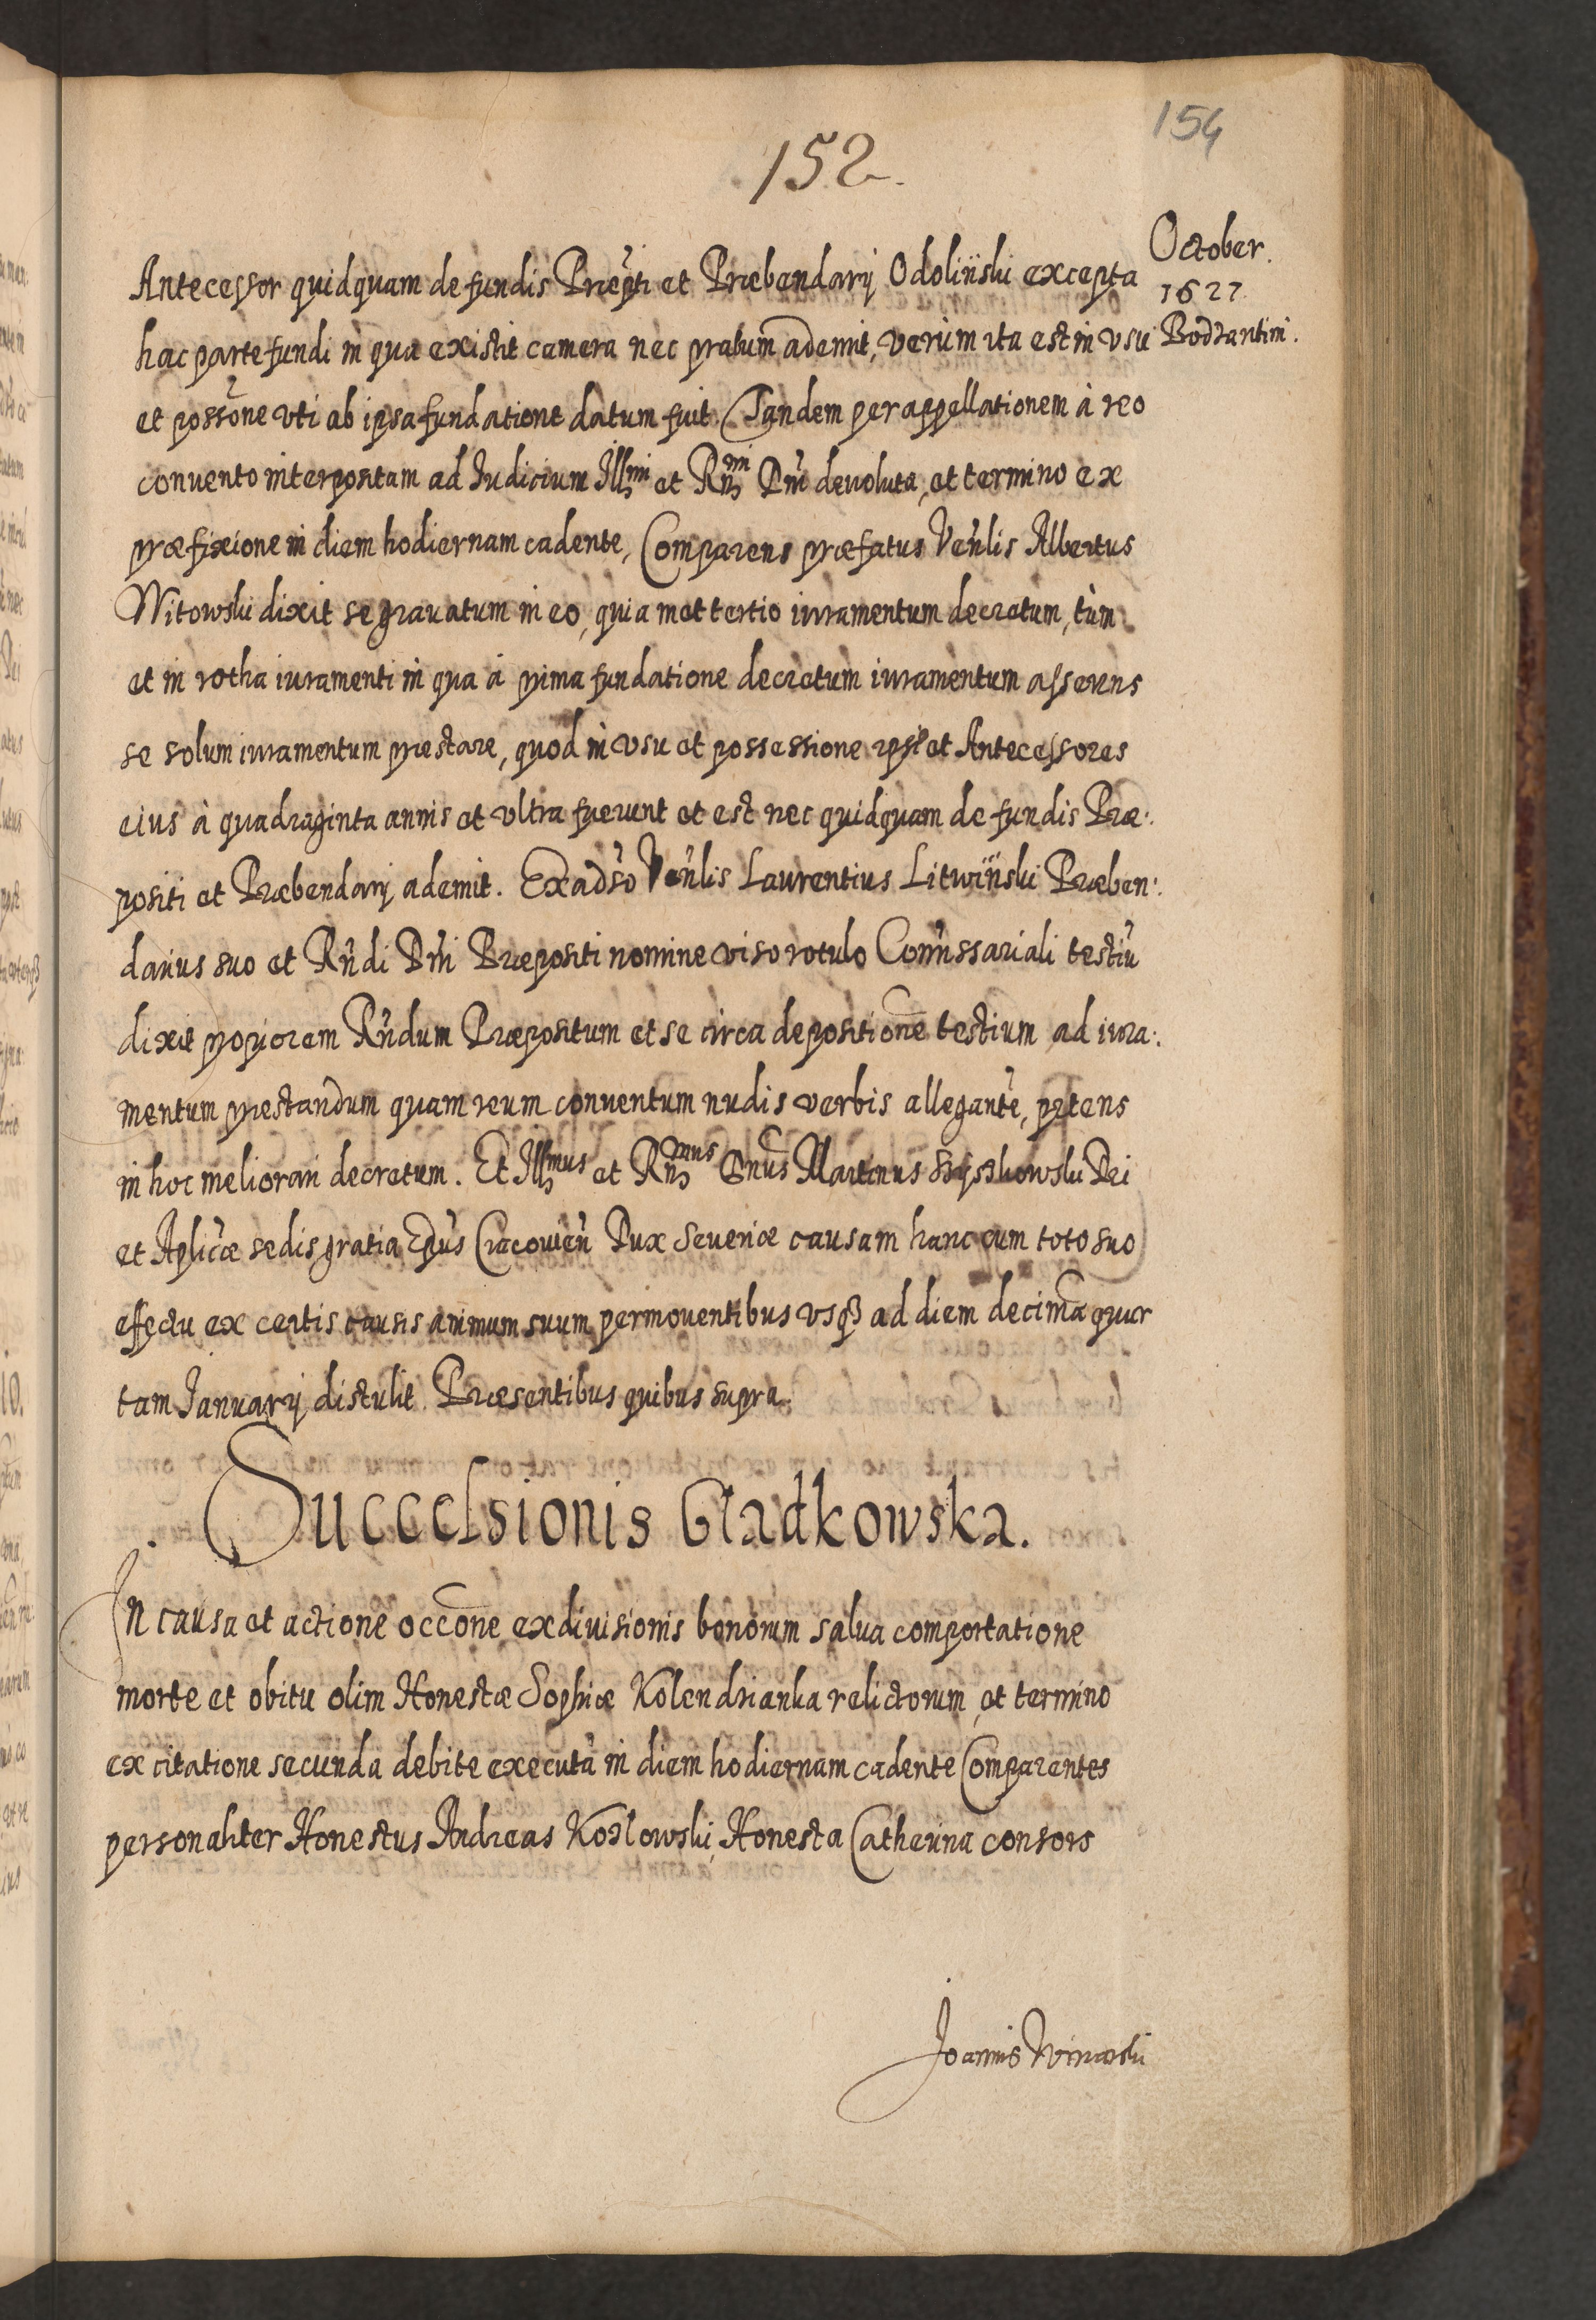 154
152
October.
1627
Bodzantini.
Antecessor quidquam de fundis Præpti et Præbendarij Odoliński excepta
hac parte fundi in qua existit camera nec pratum ademit, verùm ita est in vsu
et possone vti ab ipsa fundatione datum fuit. Tandem per appellationem à reo
convento interpositam ad Iudicium Illmi et Rndmi Dni devoluta, et termino ex
præfixione in diem hodiernam cadente, Comparens præfatus Venlis Albertus
Witowski dixit se gravatum in eo, quia met tertio iuramentum decretum, tùm
et in rotha iuramenti in qua à prima fundatione decretum iuramentum asserens
se solum iuramentum præstare, quod in vsu et possessione ipse et Antecessores
eius à quadraginta annis et vltra fuerunt et est nec quidquam de fundis Præ:
positi et Præbendarij ademit. Ex adso Venlis Laurentius Litwiński Præben:
darius suo et Rndi Dni Præpositi nomine viso rotulo Comissariali testiu
dixit propiorem Rndum Præpositum et se circa depositione testium ad iura:
mentum præstandum quam reum conventum nudis verbis allegante, petens
in hoc meliorari decretum. Et Illmus et Rndmus Dnus Martinus Szyszkowski Dei
et Aplicæ sedis gratia Epus Cracovien Dux Severiæ causam hanc cum toto suo
effectu ex certis causis animum suum permoventibus vsq ad diem decima quar
tam Ianuarij distulit. Præsentibus quibus supra.
Successionis Gładkowska.
In causa et actione occone exdivisionis bonorum salva comportatione
morte et obitu olim Honestæ Sophiæ Kolendrianka relictorum, et termino
ex citatione secunda debite executa in diem hodiernam cadente Comparentes
personaliter Honestus Andreas Kozlowski, Honesta Catherina consors
Joannis